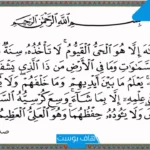 بِسْمِ اللَّهِ الرَّحْمَٰنِ الرَّحِيمِ
إِلَٰهَ إِلَّا هُوَ الْحَيُّ الْقَيُّومُ ۚ لَا تَأْخُذُهُ سِنَةٌ
السَّمَاوَاتِ وَمَا فِي الْأَرْضِ ۗ مَن ذَا الَّذِي يَشْفَعُ
يَعْلَمُ مَا بَيْنَ أَيْدِيهِمْ وَمَا خَلْفَهُمْ ۖ وَلَا
عِلْمِهِ إِلَّا بِمَا شَاءَ ۚ وَسِعَ كُرْسِيُّهُ السَّمَاوَاتِ
وَلَا يَئُودُهُ حِفْظُهُمَا ۚ وَهُوَ الْعَلِيُّ الْعَظِيمُ